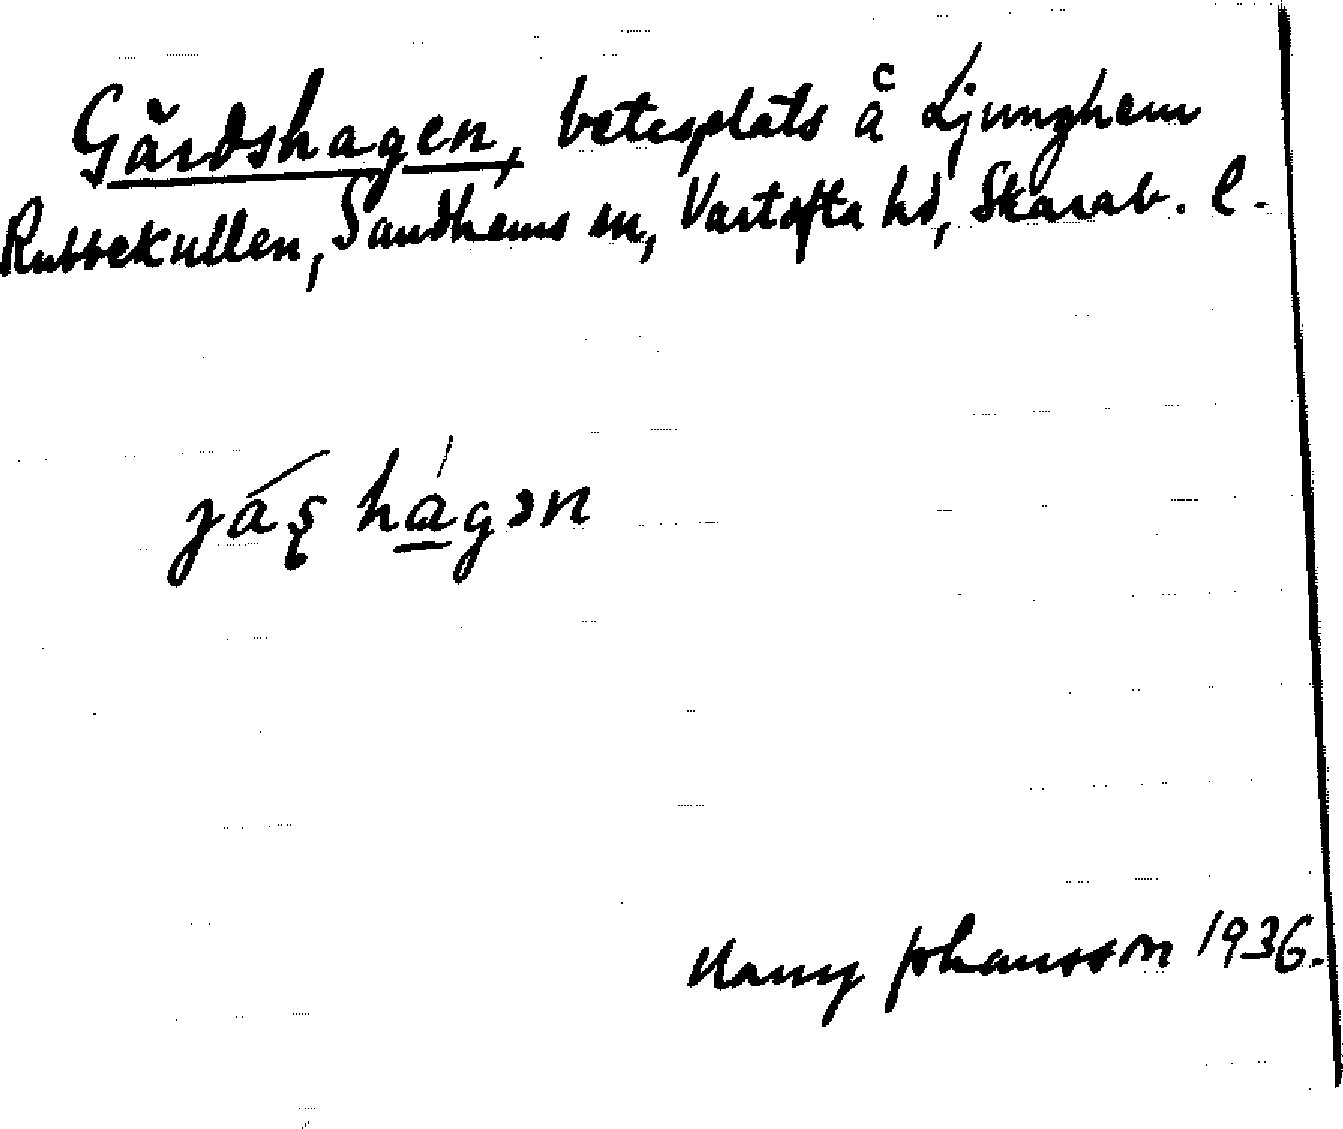 Gårdshagen, betesplats å Ljunghem
Rubbekullen, Sandhems sn, Vartofta hd, Skarab. l.
jás̨ hágən
Nanny Johansson 1936.